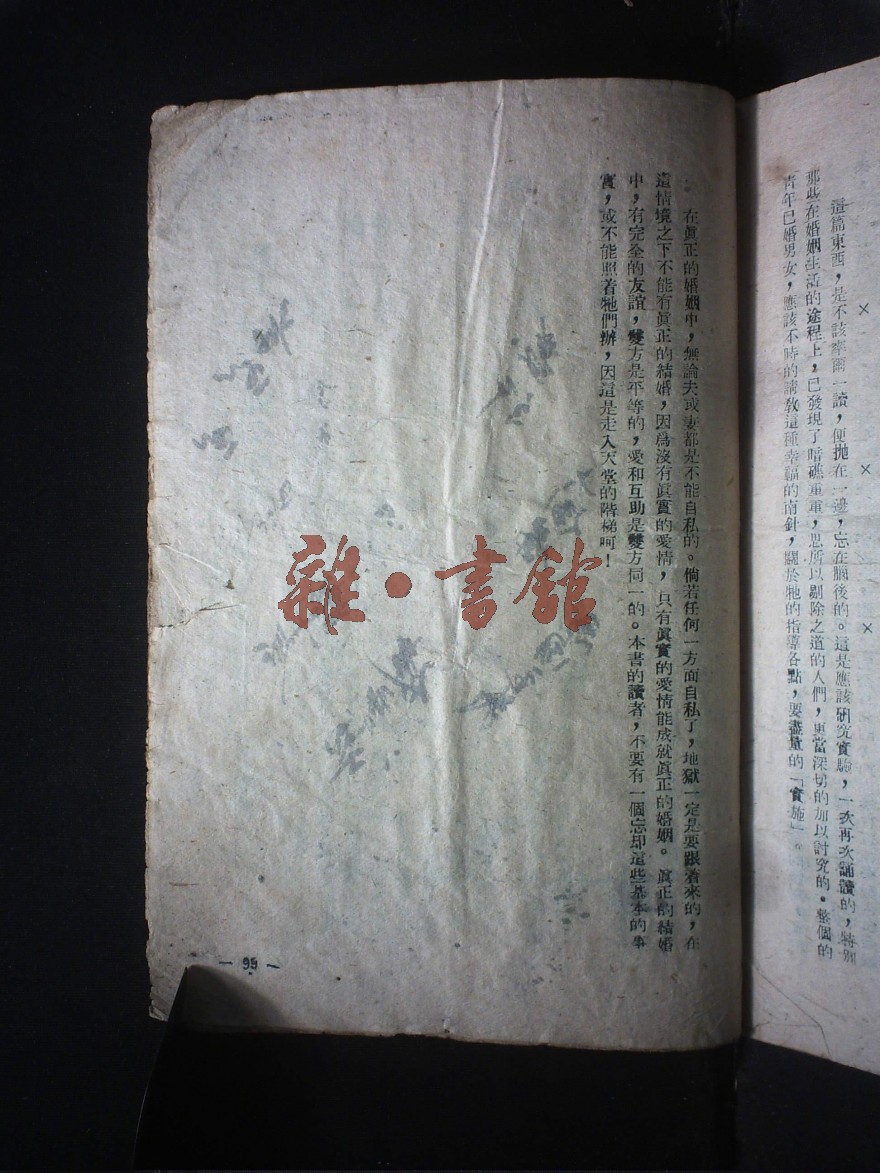 這篇東西，是不該草爾一讀，便抛在一邊，忘在腦後的。這是應該研究實驗，一次再次誦讀的，特别
那些在婚姻生活的途程上，已發現了暗礁重重，思所以剔除之道的人們，更當深切的加以討究的。整個的
靑年已婚男女，應該不時的請敎這種幸福的南針，關於牠的指導各點，要盡量的「實施」。
×
×
×
在眞正的婚姻中，無論夫或妻都是不能自私的。倘若任何一方面自私了，地獄一定是要跟着來的，在
這情境之下不能有眞正的結婚，因爲沒有眞實的愛情，只有眞實的愛情能成就眞正的婚姻。眞正的結婚
中，有完全的友誼，雙方是平等的，愛和互助是雙方同一的。本書的讀者，不要有一個忘却這些基本的事
實，或不能照着牠們辦，因這是走入天堂的階梯呵！
— 99 —
雜·書館